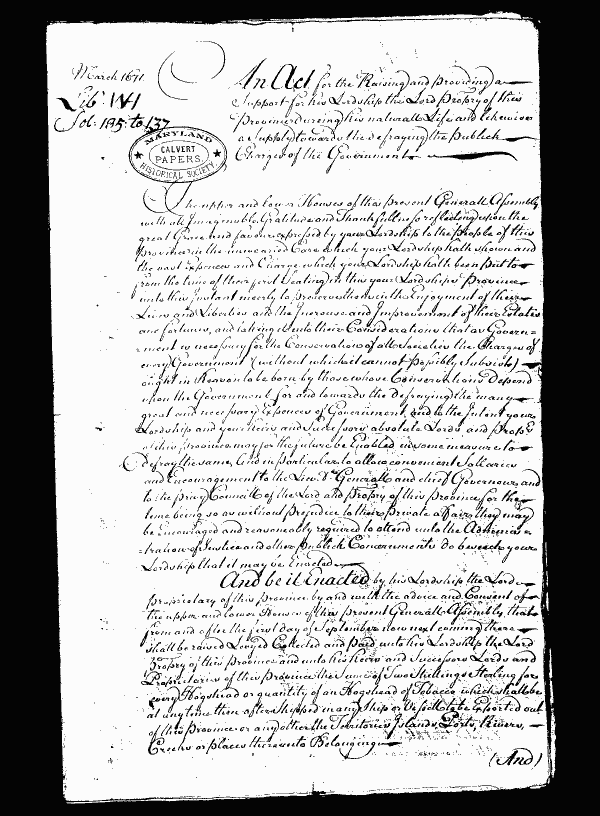 March 1671
Lib: WH
fol: 135: to 137
MARYLAND
CALVERT
PAPERS.
HISTORICAL SOCIETY.
An Act for the Raising and Providing a
Support for his Lordship the Lord Propry of this
Province during his naturall Life and likewise
a Supply towards the defraying the Publick
Charges of the Government
The upper and lower Houses of this present Generall Assembly
with all Imaginable Gratitude and Thankfullness reflecting upon the
great Grace and favour expressed by your Lordship to the People of this
Province in the unwearied Care which your Lordship hath shown and
the vast Expences and Charge which your Lordship hath been put to
from the time of their first Seating in this your Lordships Province
unto this Instant meerly to preserve them in the Enjoyment of their
Lives and Liberties and the Increase and Improvement of their Estates
and fortunes, and taking it into their Considerations that as Govern=
ment is necessary for the Conservation of all so likewise the Charges of
every Government (without which it cannot possibly Subsist)
ought in Reason to be born by those whose Conservations Depend
upon the Government for and towards the Defraying the many
great and necessary Expences of Government, and to the Intent your
Lordship and your Heirs and Successors absolute Lords and Propr
of this Province may for the future be Enabled in some measure to
defray the same, And in particular to allow convenient Sallaries
and Encouragement to the Lieut Generall and chief Governour and
to the privy Councill of the Lord and Propry of this Province for the
time being so as without Prejudice to their Private affairs they may
be Encouraged and reasonably required to attend unto the Adminis=
=tration of Justice and other Publick Concernments do beseech your
Lordship that it may be Enacted
And be it Enacted by his Lordship the Lord
Proprietary of this Province by and with the advice and Consent of
the upper and lower Houses of this present Generall Assembly that
from and after the first day of September now next coming there
shall be raised Levyed Collected and Paid unto his Lordship the Lord
Propry of this Province and unto his heirs and Successors Lords and
Proprietaries of this Province the Sume of Two Shillings Sterling for
every Hogshead or quantity of an Hogshead of Tobacco which shall be
at any time then after Shipped in any Ship or Vessell to be Exported out
of this Province or any other the Territories Islands, Ports, Rivers,
Creeks or places thereunto Belonging
(And)